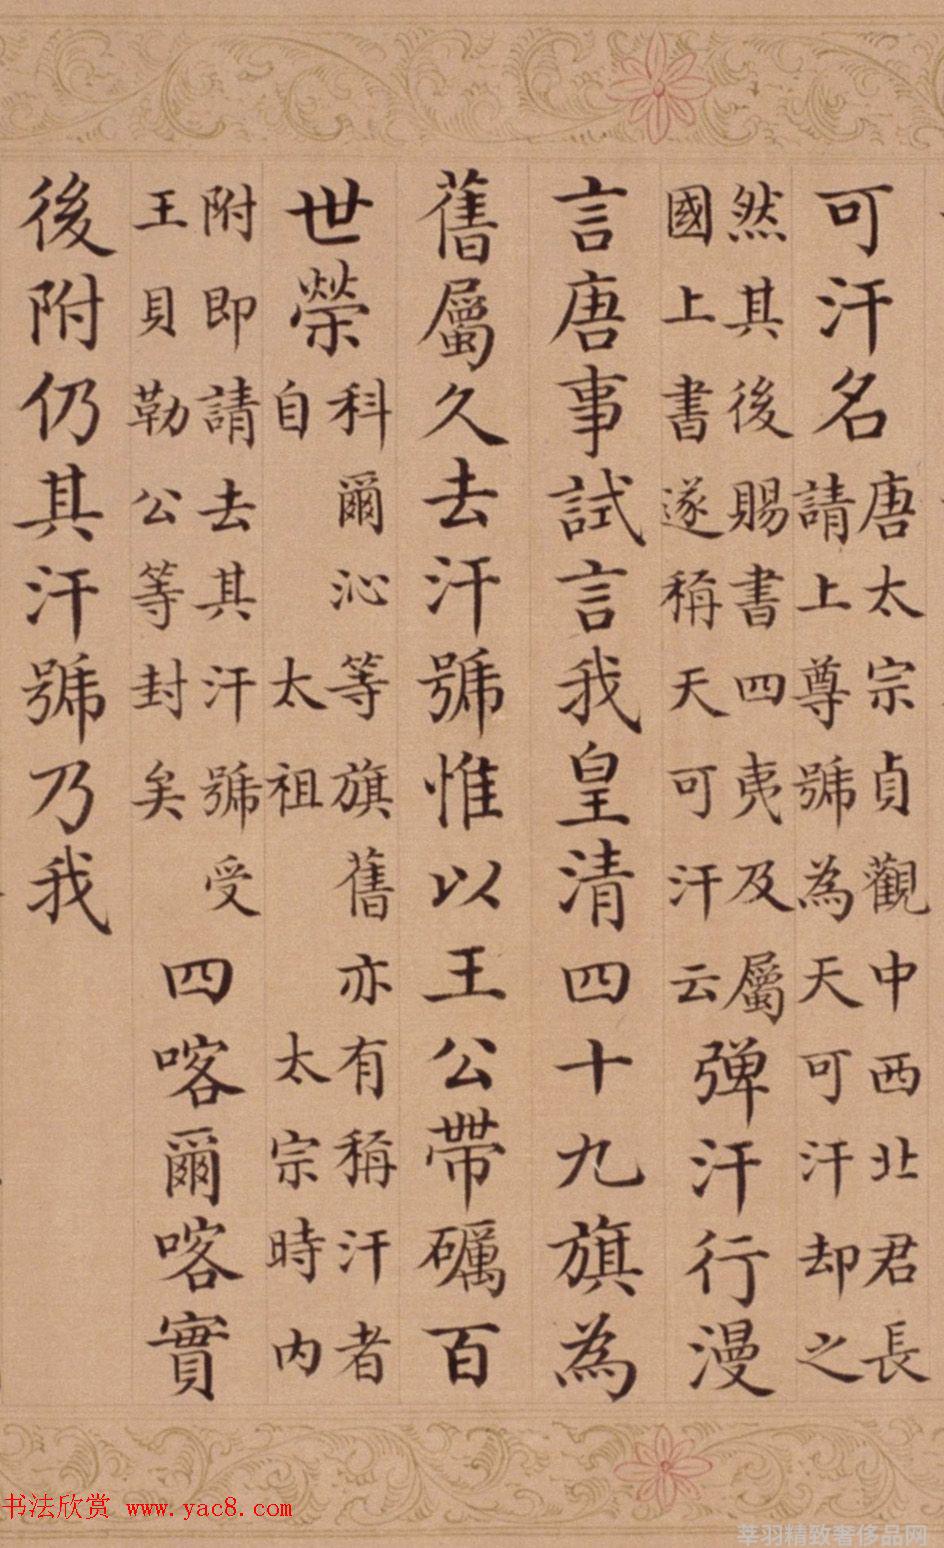 可汗名
唐太宗貞觀中西北君長
請上尊號為天可汗却之
然其後賜書四夷及屬
國上書遂稱天可汗云
弹汗行漫
言唐事試言我皇清四十九旗為
舊屬久去汗號惟以王公帶礪百
世榮
科爾沁等旗舊亦有稱汗者
自 太祖 太宗時内
附即請去其汗號受
王貝勒公等封矣
四喀爾喀實
後附仍其汗號乃我
书法欣赏 www.yac8.com
莘羽精致奢侈品网